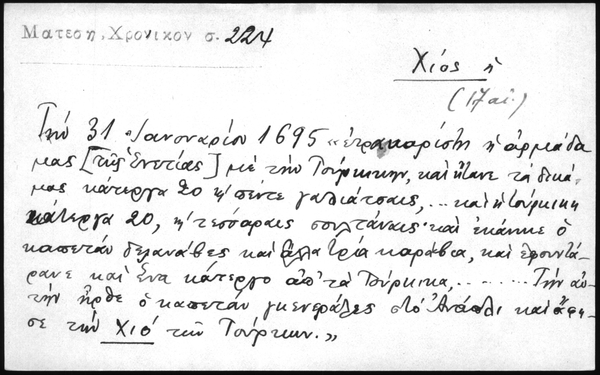 Ματεση, Χρονικον σ. 224
Χίος ἡ
(17 αἰ.)
Τήν 31 Ἰανουαρίου 1695 «ἐτρακαρίσθη ἡ ἁρμάδα
μας [τῆς Ἐνετίας] μέ τήν Τούρκικην, καί ἤτανε τά δικά
μας κάτεργα 20 κ' πέντε γαλιάτσαις, ... καί ἡ τούρκικη
κάτεργα 20, κ' τέσσαραις σουλτάναις καί ἐκάηκε ὁ
καπετάν δελανάβες καί ἄλλα τρία καράβια, καί ἐφουντά-
ρανε καί ἕνα κάτεργο ἀπ' τά Τούρκικα, ........ Τήν αὐ-
τήν ἦρθε ὁ καπετάν γκενεράλες στό Ἀνάπλι καί ἄφη-
σε τήν Χιό τῶν Τούρκων.»